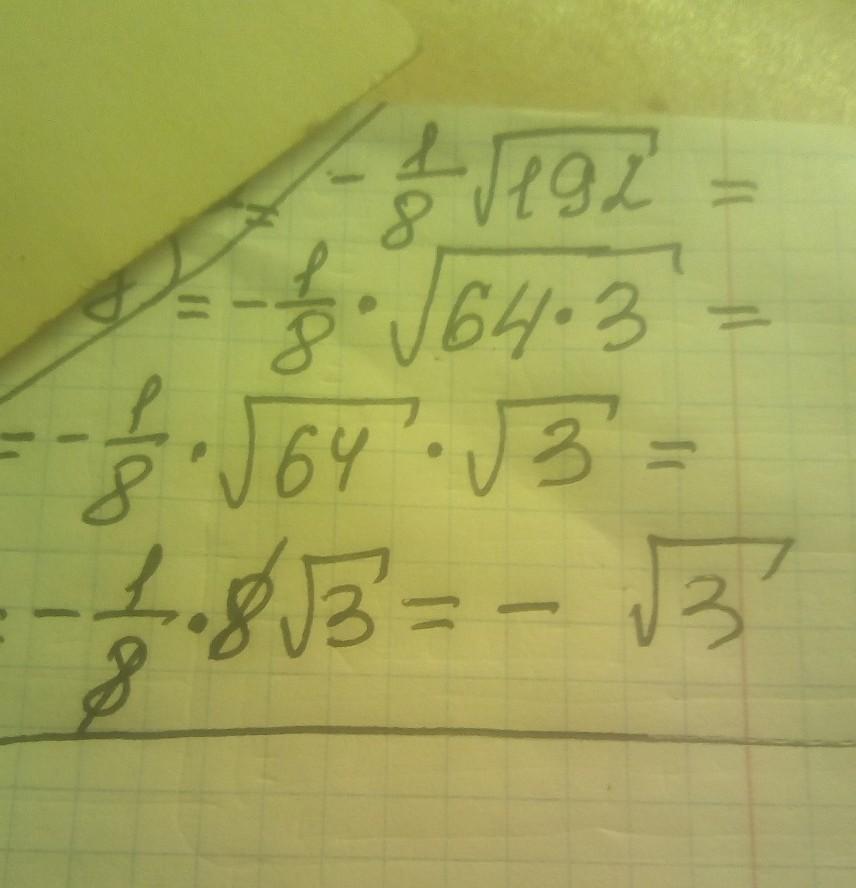 = - 1/8 √192 =
= - 1/8 · √64·3 =
= - 1/8 · √64 · √3 =
= - 1/8 · 8√3 = - √3